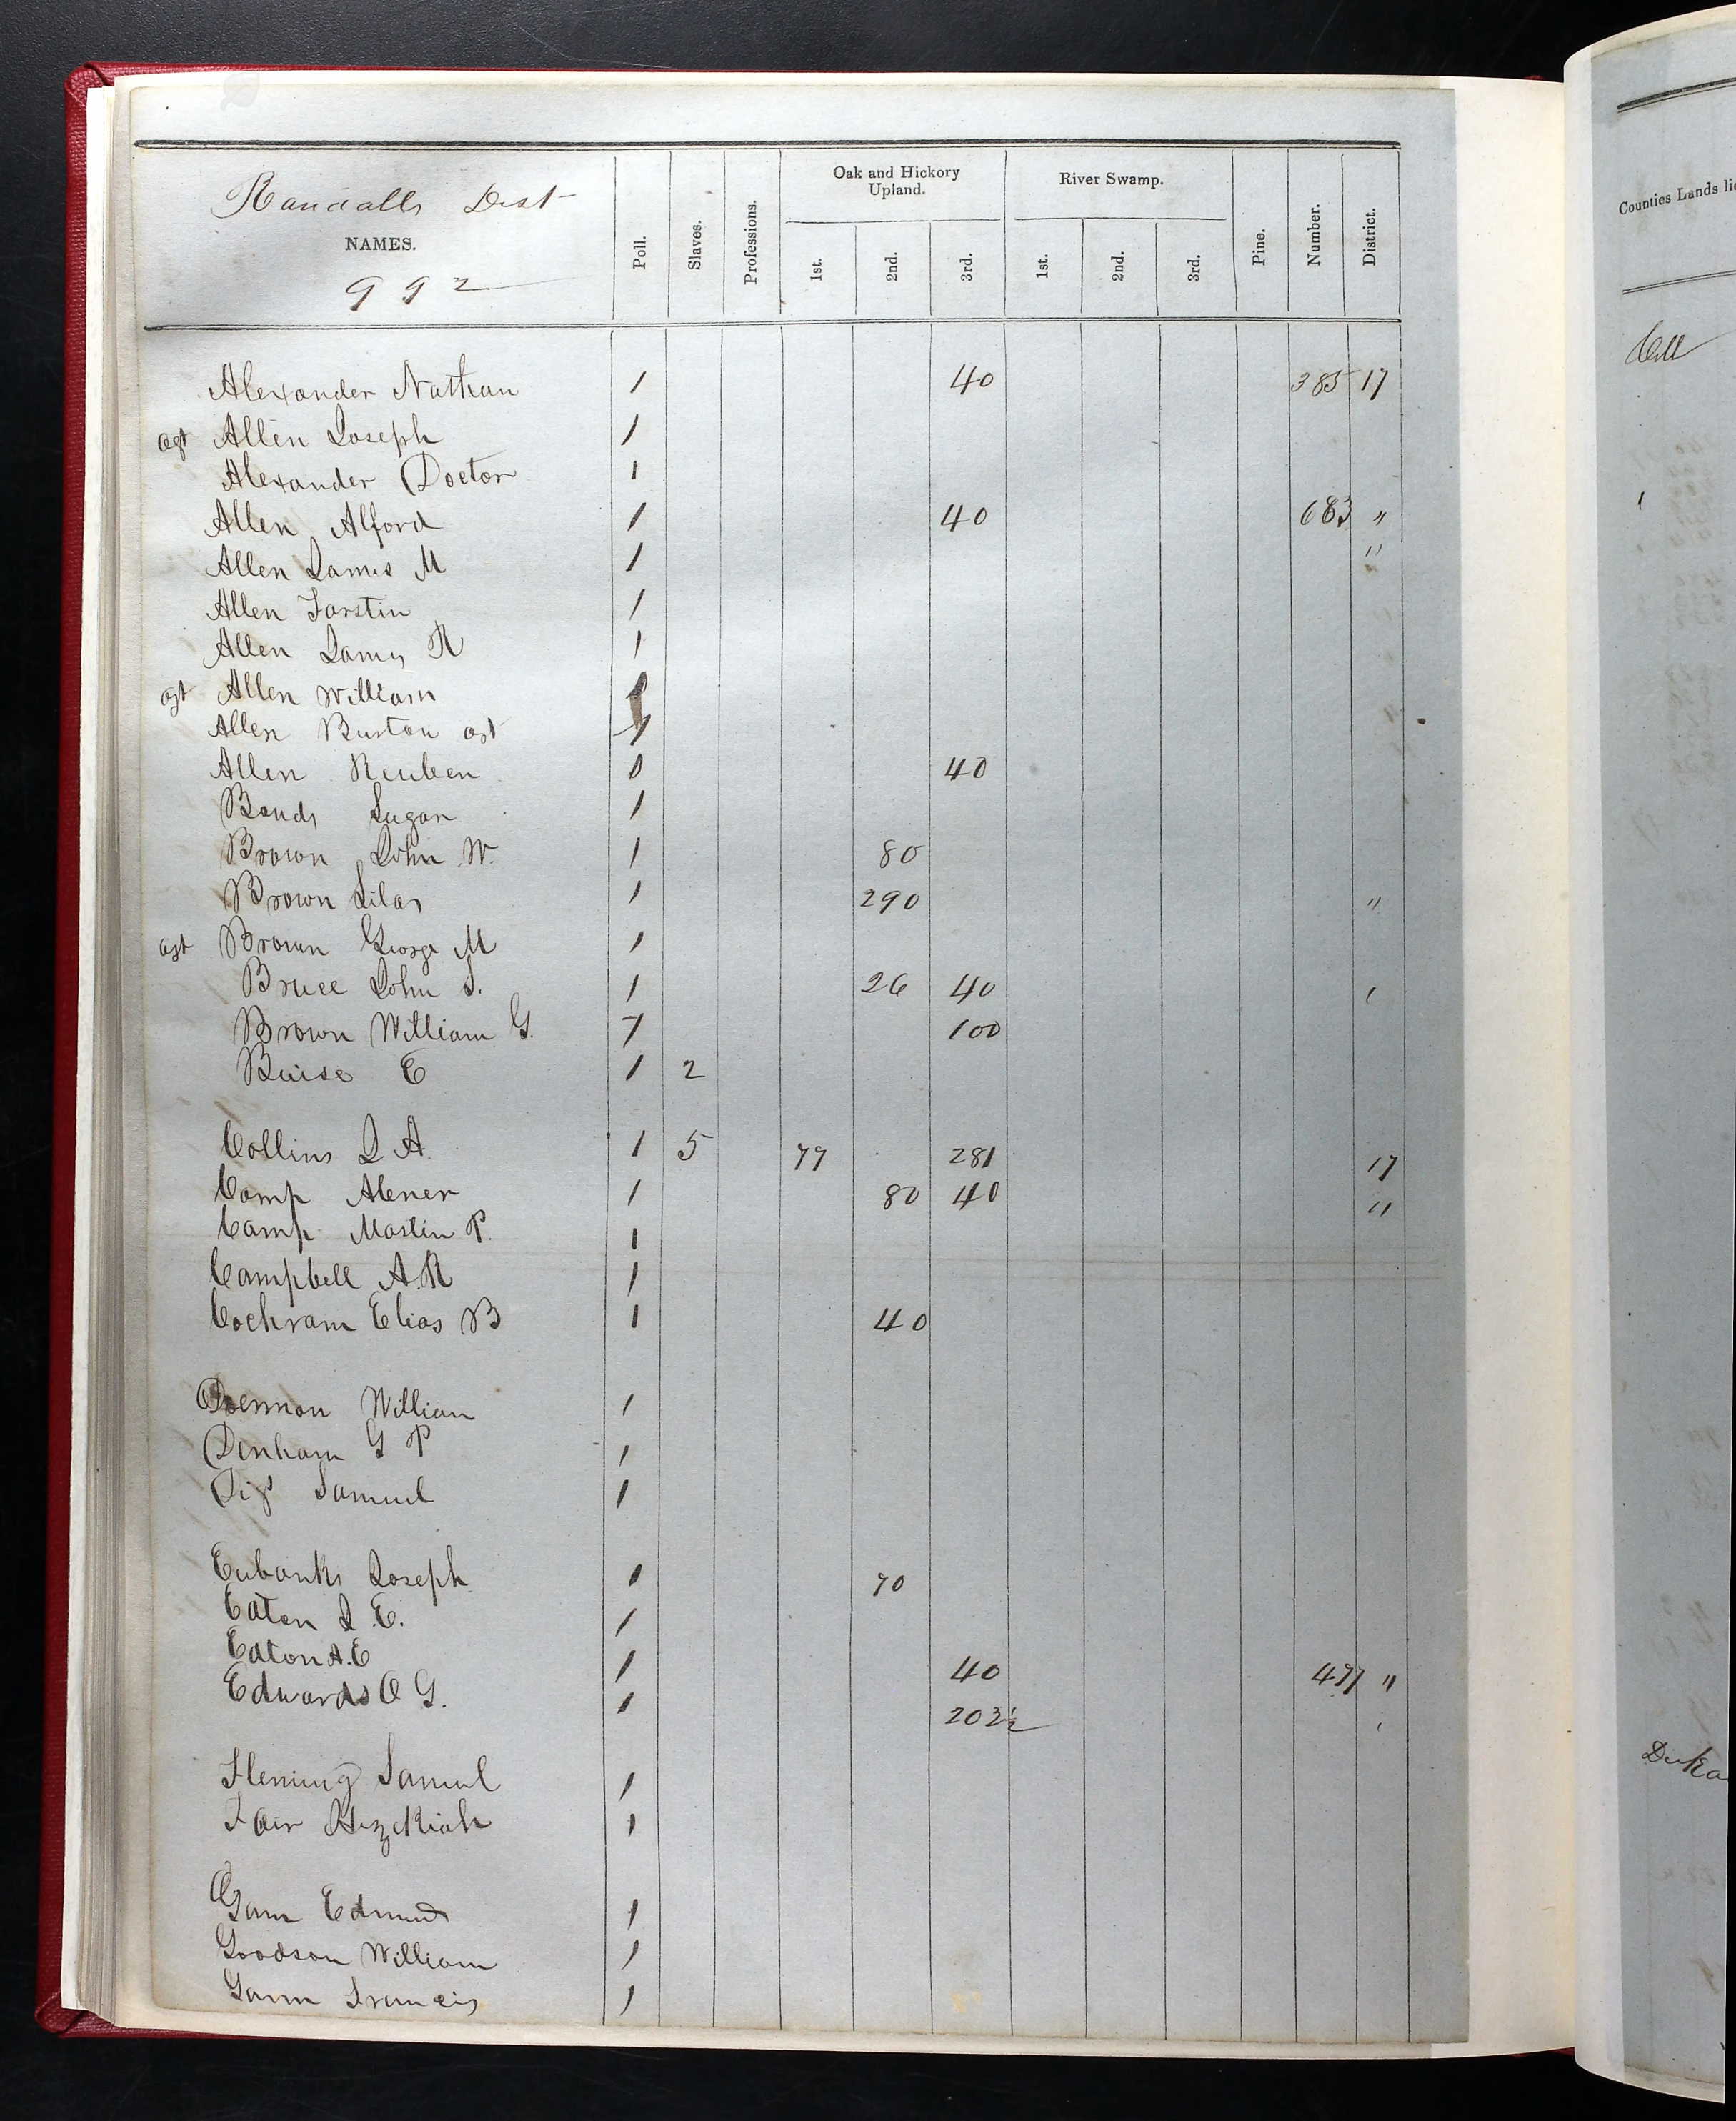 Oak and Hickory Upland. River Swamp.
Randalls Dist
NAMES.
992
Poll. Slaves. Professions. 1st. 2nd. 3rd. 1st. 2nd. 3rd. Pine. Number. District.
Counties Lands
Alexander Nathan 1 40 385 17
agt Allen Joseph 1
Alexander Doctor 1
Allen Alford 1 40 683 "
Allen James M 1 "
Allen 1
Allen James R 1
agt Allen William
Allen Burton agt 1
Allen Reuben 0 40
Bonds 1
Brown John W. 1 80
Brown Silas 1 290 "
agt Brown George M 1
Bruce John S. 1 26 40
Brown William G. 1 100
Buise E 1 2
Collins J A. 1 5 77 281 17
Camp Abner 1 80 40 "
Camp Mastin P. 1
Campbell A. R 1
Cochram Elias B 1 40
William 1
Denham G P 1
Samuel 1
Eubanks Joseph 1 70
Eaton J. E. 1
Eaton A. E 1 40 477 "
Edwards O G. 1 203½
Fleming Samuel 1
Fair Hezekiah 1
Gann Edmund 1
Goodson William 1
Gann Francis 1